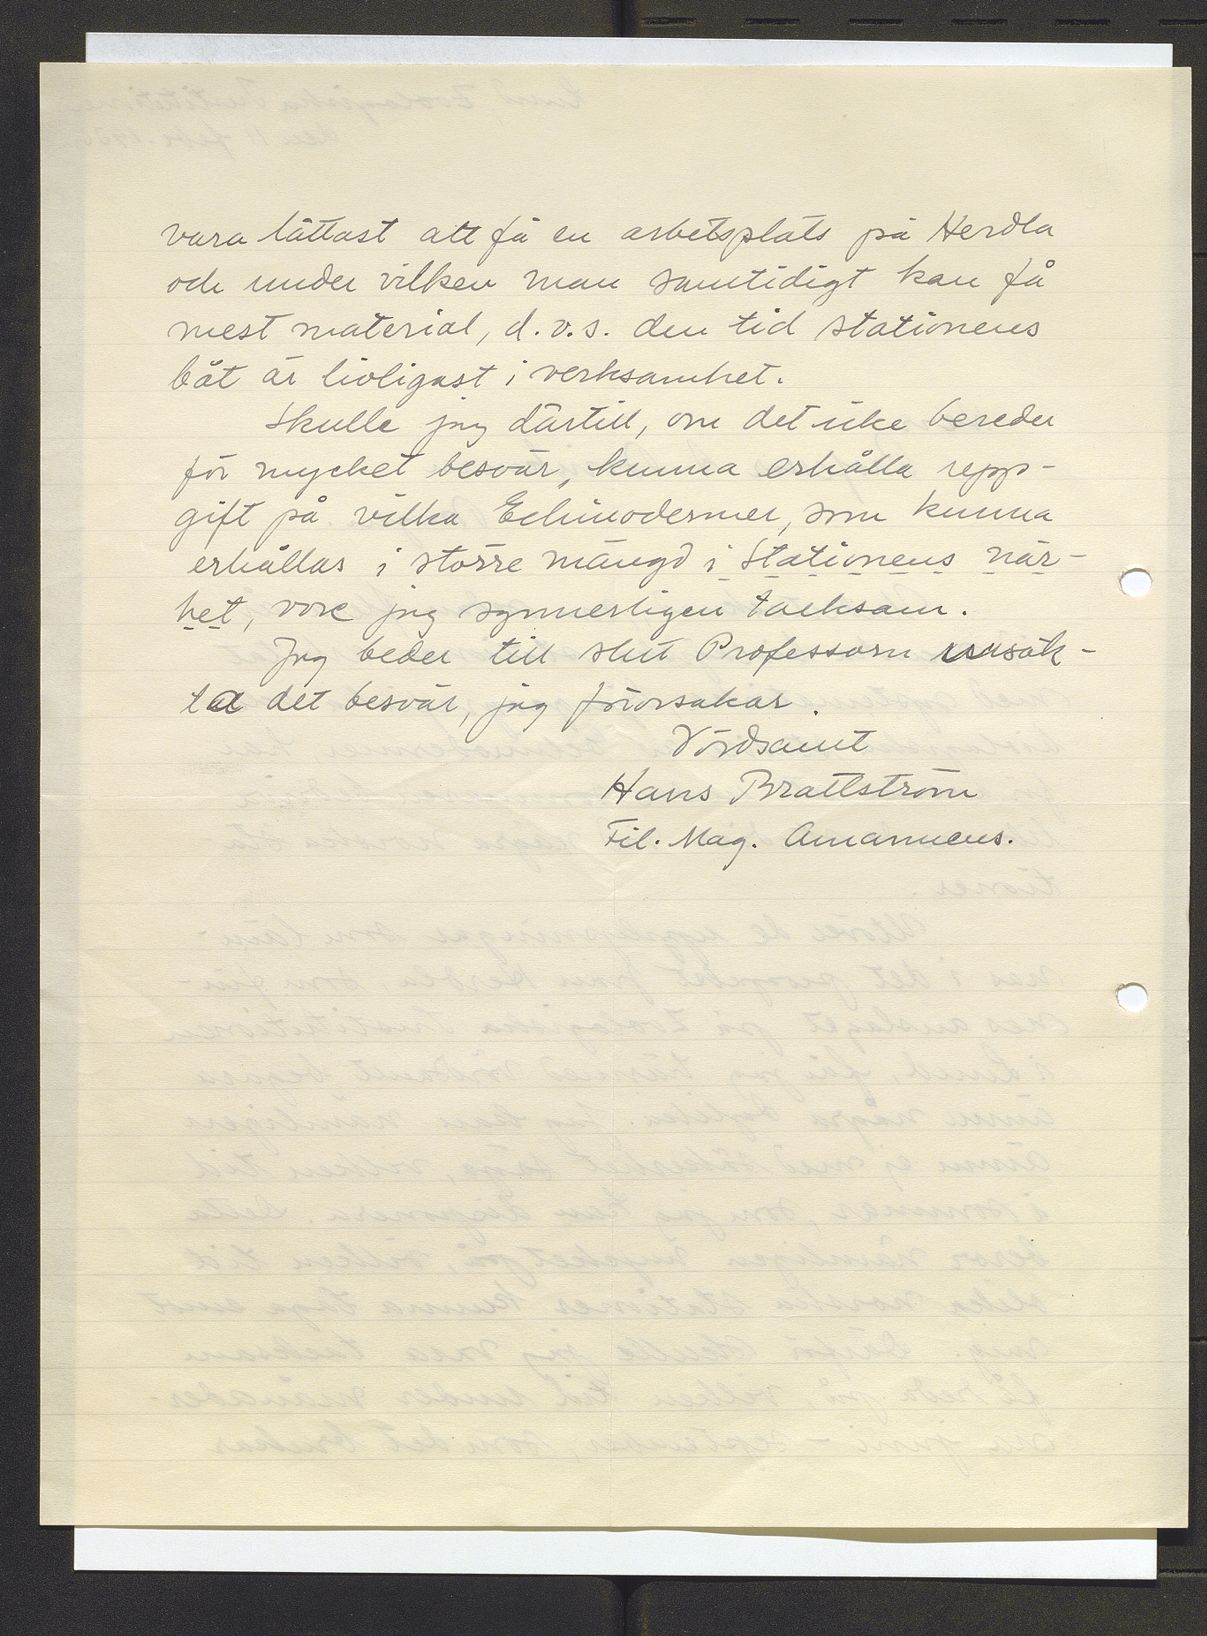 vara lättast att få en arbetsplats på Herdla
och under vilken man samtidigt kan få
mest material, d.v.s. den tid stationens
båt är livligast i verksamhet.
Skulle jag därtill, om det icke bereder
för mycket besvär, kunna erhålla upp-
gift på vilka Echinodermer, som kunna
erhållas i större mängd i stationens när-
het, vore jag synnerligen tacksam.
Jag beder till slut Professorn ursäk-
ta det besvär, jag förorsakar.
Vördsamt
Hans Brattström
Fil. Mag. Amanuens.